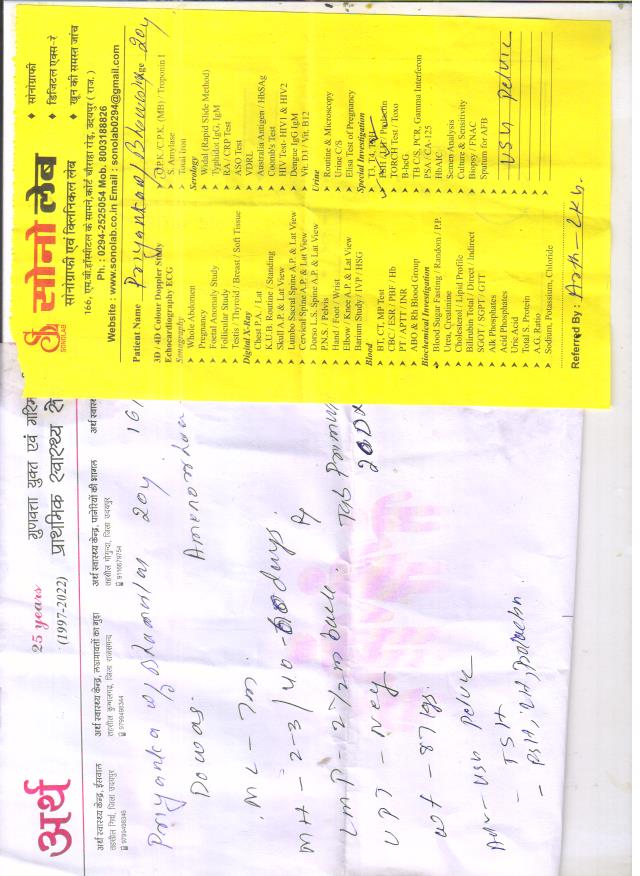 अर्थ
25 years
(1997-2022)
गुणवत्ता युक्त एवं
प्राथमिक स्वास्थ्य
अर्थ स्वास्थ्य केन्द्र, ईसवाल
अर्थ स्वास्थ्य केन्द्र,
Priyanka w/ Bhamarlal 20y
Amenorrhoea
MC - 7m
MH - 2-3/40-60 days.
LMP - 2 1/2 m back.
UPT - Neg
Wt - 87 kgs.
Adv - USG Pelvic
- TSH
सोनो लेब
SONOLAB
सोनोग्राफी एवं क्लिनिकल लेब
◆ सोनोग्राफी
◆ डिजिटल एक्स-रे
◆ खून की समस्त जांच
166, एम.बी.हॉस्पीटल के सामने,कोर्ट चौराहा रोड़, उदयपुर ( राज. )
Ph. : 0294-2525054 Mob. 8003188826
Website : www.sonolab.co.in Email : sonolab0294@gmail.com
Patient Name Priyanka w/ Age 20y
3D / 4D Colour Doppler Study
Echocardiography ECG
Sonography
Whole Abdomen
Pregnancy
Foetal Anomaly Study
Follicular Study
Testis / Thyroid / Breast / Soft Tissue
Digital X-Ray
Chest P.A. / Lat
K.U.B. Routine / Standing
Skull A.P. & Lat View
Lumbo Sacral Spine A.P. & Lat View
Cervical Spine A.P. & Lat View
Dorso L.S. Spine A.P. & Lat View
P.N.S. / Pelvis
Hand / Foot / Wrist
Elbow / Knee A.P. & Lat View
Barium Study / IVP / HSG
Blood
BT, CT, MP Test
CBC / ESR / PBF / Hb
PT / APTT / INR
ABO & Rh Blood Group
Biochemical Investigation
Blood Sugar Fasting / Random / P.P.
Urea, Creatinine
Cholesterol / Lipid Profile
Bilirubin Total / Direct / Indirect
SGOT / SGPT / GTT
Alk Phosphates
Acid Phosphates
Uric Acid
Total S. Protein
A.G. Ratio
Sodium, Potassium, Chloride
C.P.K. /C.P.K. (MB) / Troponin I
S. Amylase
Total Iron
Serology
Widal (Rapid Slide Method)
Typhidot IgG, IgM
RA / CRP Test
ASO Test
VDRL
Australia Antigen / HbSAg
Coomb's Test
HIV Test- HIV1 & HIV2
Dengue IgG IgM
Vit. D3 / Vit. B12
Urine
Routine & Microscopy
Urine C/S
Elisa Test of Pregnancy
Special Investigation
T3, T4, TSH
FSH / LH / Prolactin
TORCH Test / Toxo
B-hcG
TB C/S, PCR, Gamma Interferon
PSA / CA-125
HbAIC
Semen Analysis
Culture & Sensitivity
Biopsy / FNAC
Sputum for AFB
USG Pelvic
Referred By :